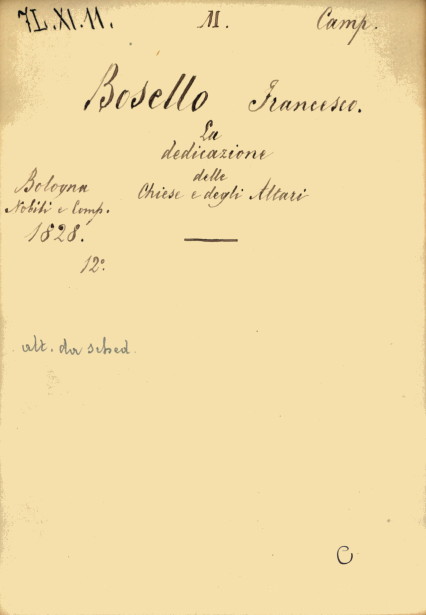 7L.XI.11. M. Camp.
Bosello Francesco.
La
dedicazione
delle
Chiese e degli Altari
Bologna
Nobili e Comp.
1828.
12º.
alt. da sched
C